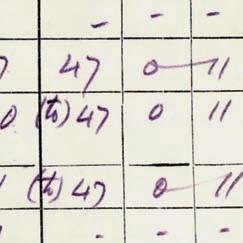 - - -
7 47 0 — 11
0 (to) 47 0 11
(to) 47 0 — 11
- - -